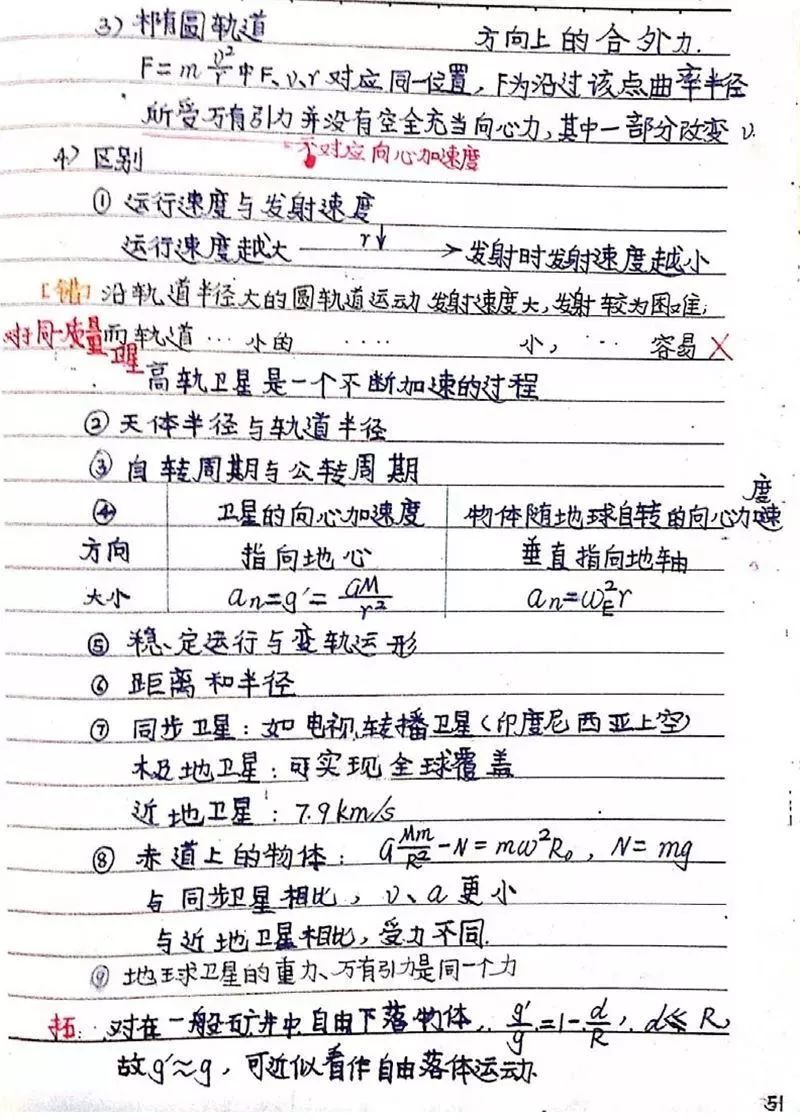 3) 椭圆轨道
方向上的合外力.
F=m v²/r 中F、v、r 对应同一位置，F为沿过该点曲率半径
所受万有引力并没有完全充当向心力,其中一部分改变 v.
不对应向心加速度
4) 区别
① 运行速度与发射速度
运行速度越大 —r↓→ 发射时发射速度越小
[错] 沿轨道半径大的圆轨道运动 发射速度大,发射较为困难;
对于同一质量卫星
而轨道 … 小的 ···· 小, ··· 容易 ×
高轨卫星是一个不断加速的过程
② 天体半径与轨道半径
③ 自转周期与公转周期
④ 卫星的向心加速度 物体随地球自转的向心加速度
方向 指向地心 垂直指向地轴
大小 aₙ=g'=GM/r² aₙ=ω_E²r
⑤ 稳定运行与变轨运形
⑥ 距离和半径
⑦ 同步卫星：如电视转播卫星(印度尼西亚上空)
极地卫星：可实现全球覆盖
近地卫星：7.9km/s
⑧ 赤道上的物体： G Mm/R² -N=mω²R₀, N=mg
与同步卫星相比, v、a 更小
与近地卫星相比,受力不同.
⑨ 地球卫星的重力、万有引力是同一个力
拓: 对在一般矿井中自由下落物体, g'/g=1-d/R, d≪R,
故g'≈g, 可近似看作自由落体运动.
51